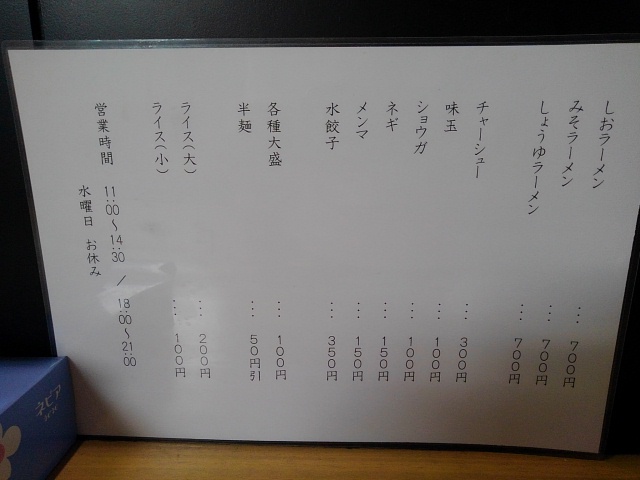 しおラーメン … 700円
みそラーメン … 700円
しょうゆラーメン … 700円
チャーシュー … 300円
味玉 … 100円
ショウガ … 100円
ネギ … 150円
メンマ … 150円
水餃子 … 350円
各種大盛 … 100円
半麺 … 50円引
ライス(大) … 200円
ライス(小) … 100円
営業時間 11:00～14:30 / 18:00～21:00
水曜日 お休み
ネピア